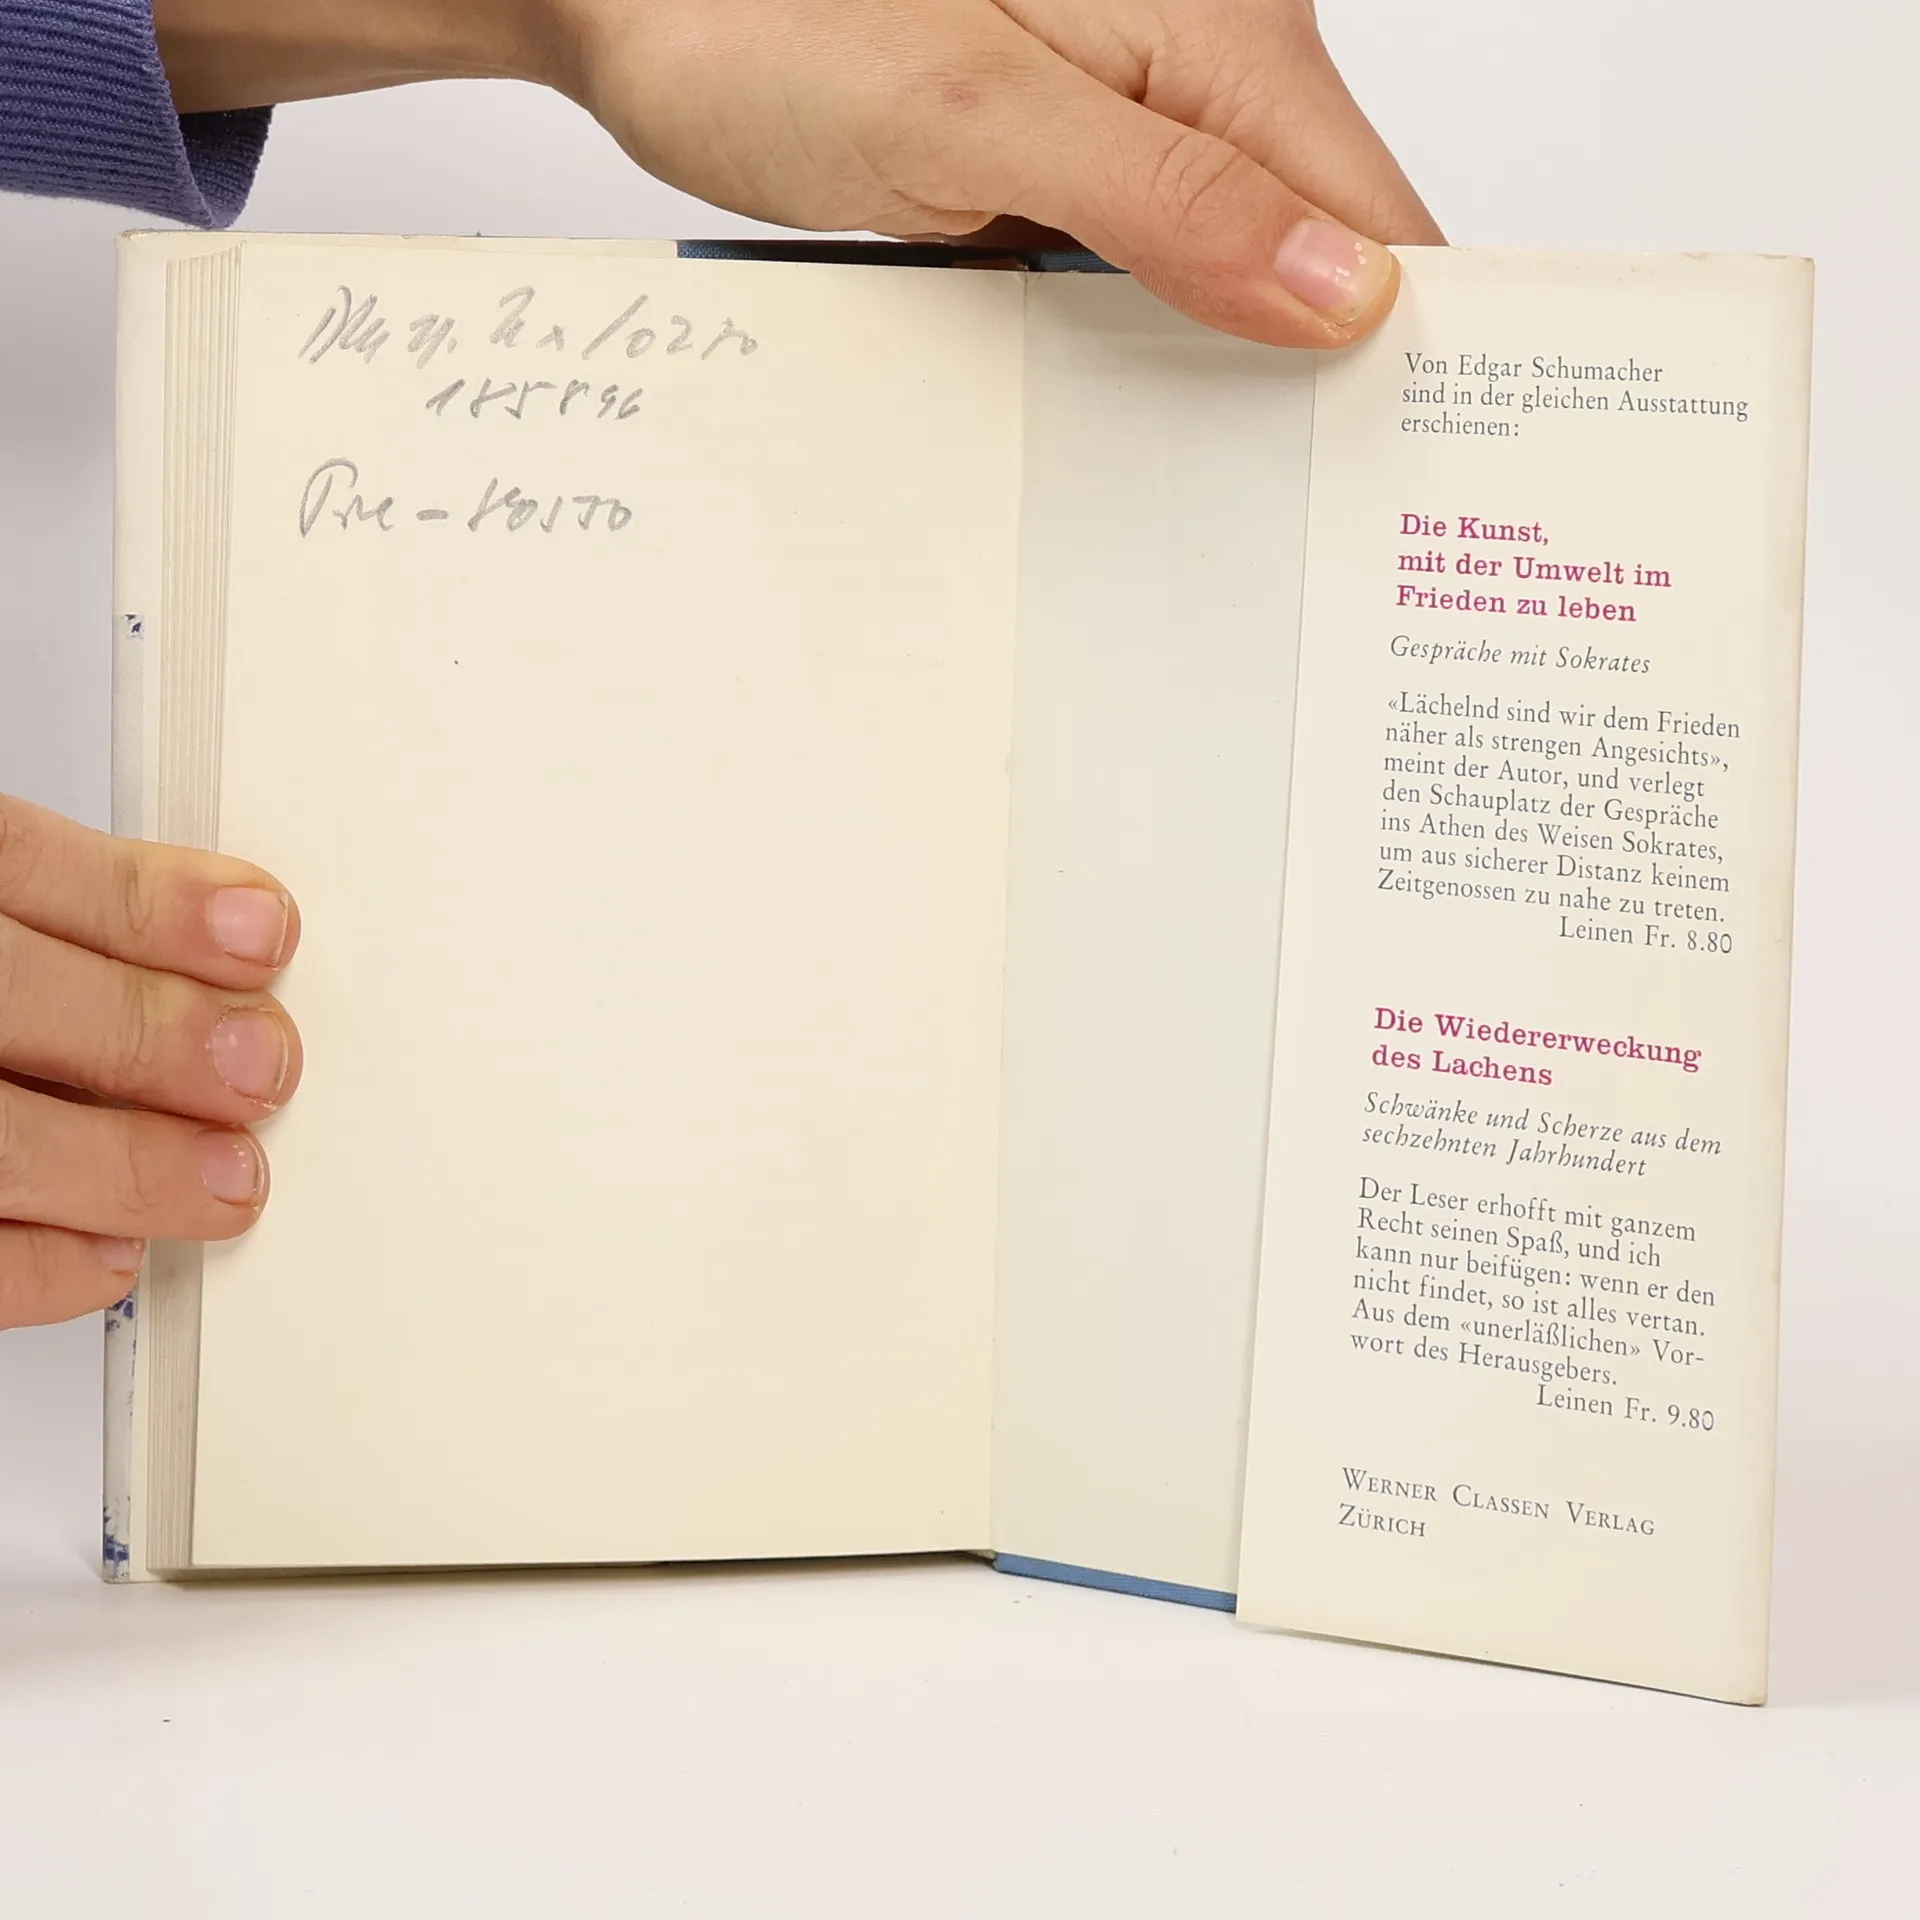 185896
Von Edgar Schumacher
sind in der gleichen Ausstattung
erschienen:
Die Kunst,
mit der Umwelt im
Frieden zu leben
Gespräche mit Sokrates
«Lächelnd sind wir dem Frieden
näher als strengen Angesichts»,
meint der Autor, und verlegt
den Schauplatz der Gespräche
ins Athen des Weisen Sokrates,
um aus sicherer Distanz keinem
Zeitgenossen zu nahe zu treten.
Leinen Fr. 8.80
Die Wiedererweckung
des Lachens
Schwänke und Scherze aus dem
sechzehnten Jahrhundert
Der Leser erhofft mit ganzem
Recht seinen Spaß, und ich
kann nur beifügen: wenn er den
nicht findet, so ist alles vertan.
Aus dem «unerläßlichen» Vor-
wort des Herausgebers.
Leinen Fr. 9.80
WERNER CLASSEN VERLAG
ZÜRICH